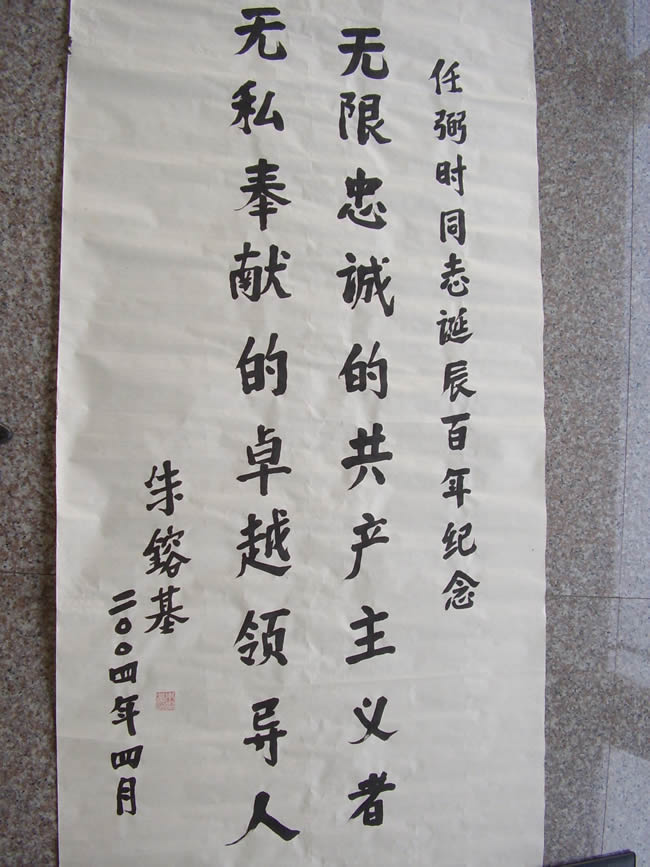 任弼时同志诞辰百年纪念
无限忠诚的共产主义者
无私奉献的卓越领导人
朱镕基
二〇〇四年四月